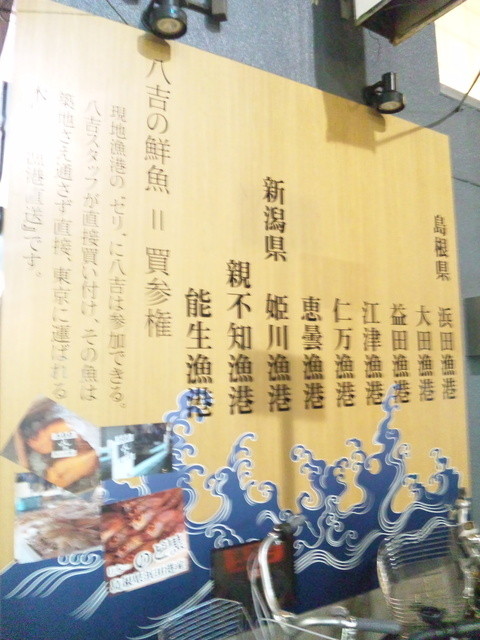 島根県 浜田漁港
大田漁港
益田漁港
江津漁港
仁万漁港
恵曇漁港
新潟県 姫川漁港
親不知漁港
能生漁港
八吉の鮮魚＝買参権
現地漁港の『セリ』に八吉は参加できる。
八吉スタッフが直接買い付け、その魚は
築地さえ通さず直接、東京に運ばれる
漁港直送』です。
のど黒
島根県浜田港産